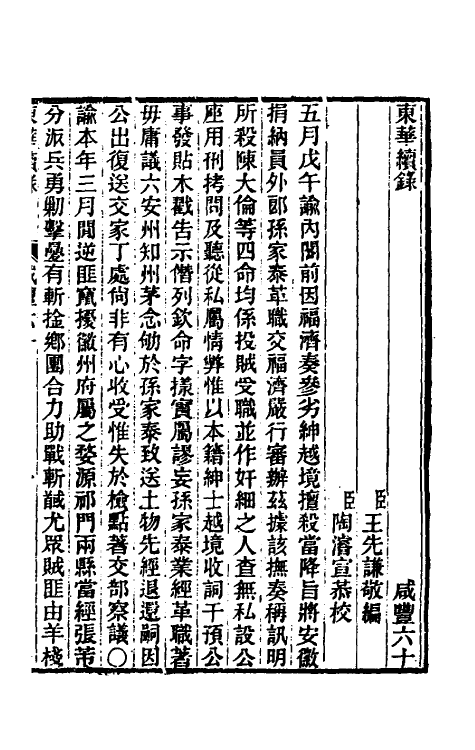 東華續錄　咸豐六十
臣王先謙敬編
臣陶濬宣恭校
五月戊午諭內閣前因福濟奏參劣紳越境擅殺當降旨將安徽
捐納員外郎孫家泰革職交福濟嚴行審辦茲據該撫奏稱訊明
所殺陳大倫等四命均係投賊受職並作奸細之人查無私設公
座用刑拷問及聽從私屬情弊惟以本籍紳士越境收詞干預公
事發貼木戳告示僭列欽命字樣實屬謬妄孫家泰業經革職著
毋庸議六安州知州茅念劬於孫家泰致送土物先經退還嗣因
公出復送交家丁處尙非有心收受惟失於檢點著交部察議〇
諭本年三月閒逆匪竄擾徽州府屬之婺源祁門兩縣當經張芾
分派兵勇勦擊疊有斬捡鄉團合力助戰斬馘尤眾賊匪由羊棧
東華續錄　咸豐六十　一